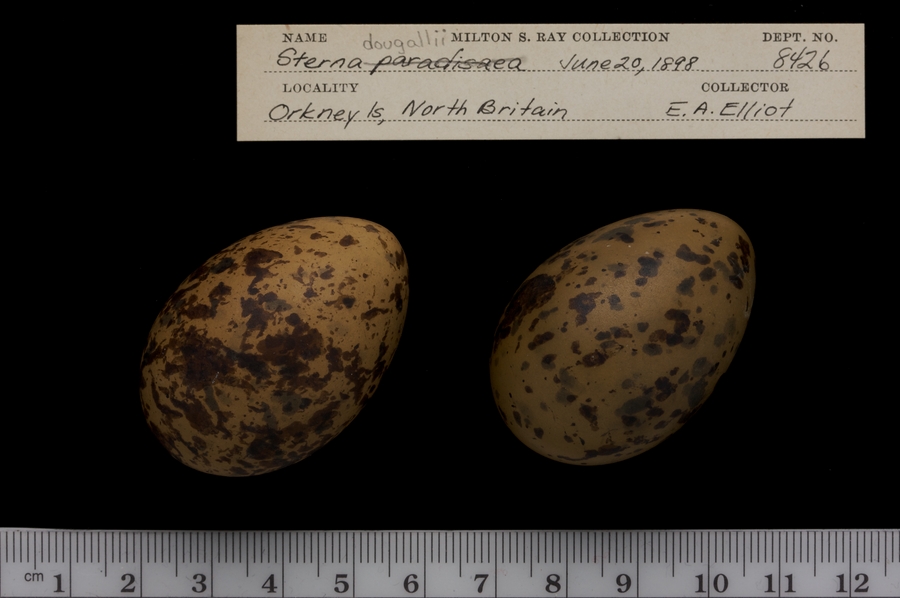 NAME dougallii MILTON S. RAY COLLECTION DEPT. NO.
Sterna paradisaea June 20, 1898 8426
LOCALITY COLLECTOR
Orkney Is, North Britain E. A. Elliot
cm 1 2 3 4 5 6 7 8 9 10 11 12